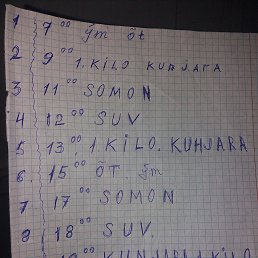 1 7⁰⁰ ўm ŏt
2 9⁰⁰ 1. KILO KUNJARA
3 11⁰⁰ SOMON
4 12⁰⁰ SUV
5 13⁰⁰ 1. KILO. KUHJARA
6 15⁰⁰ ŎT. ўm
7 17⁰⁰ SOMON
8 18⁰⁰ SUV.